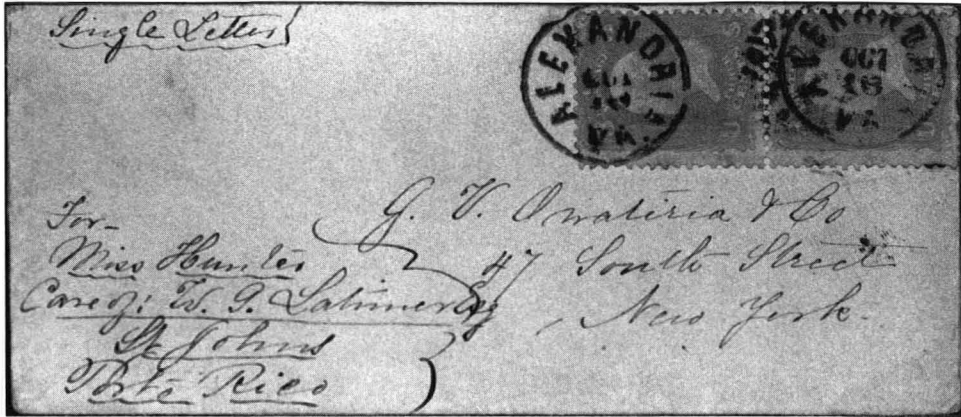 Single Letter
ALEXANDRIA
OCT
18
VA.
ALEXANDRIA
OCT
18
VA
G. V. & Co
47 South Street
New York.
For-
Miss Hunter
Care of: W. G. Latimer Esq
St Johns
Porto Rico